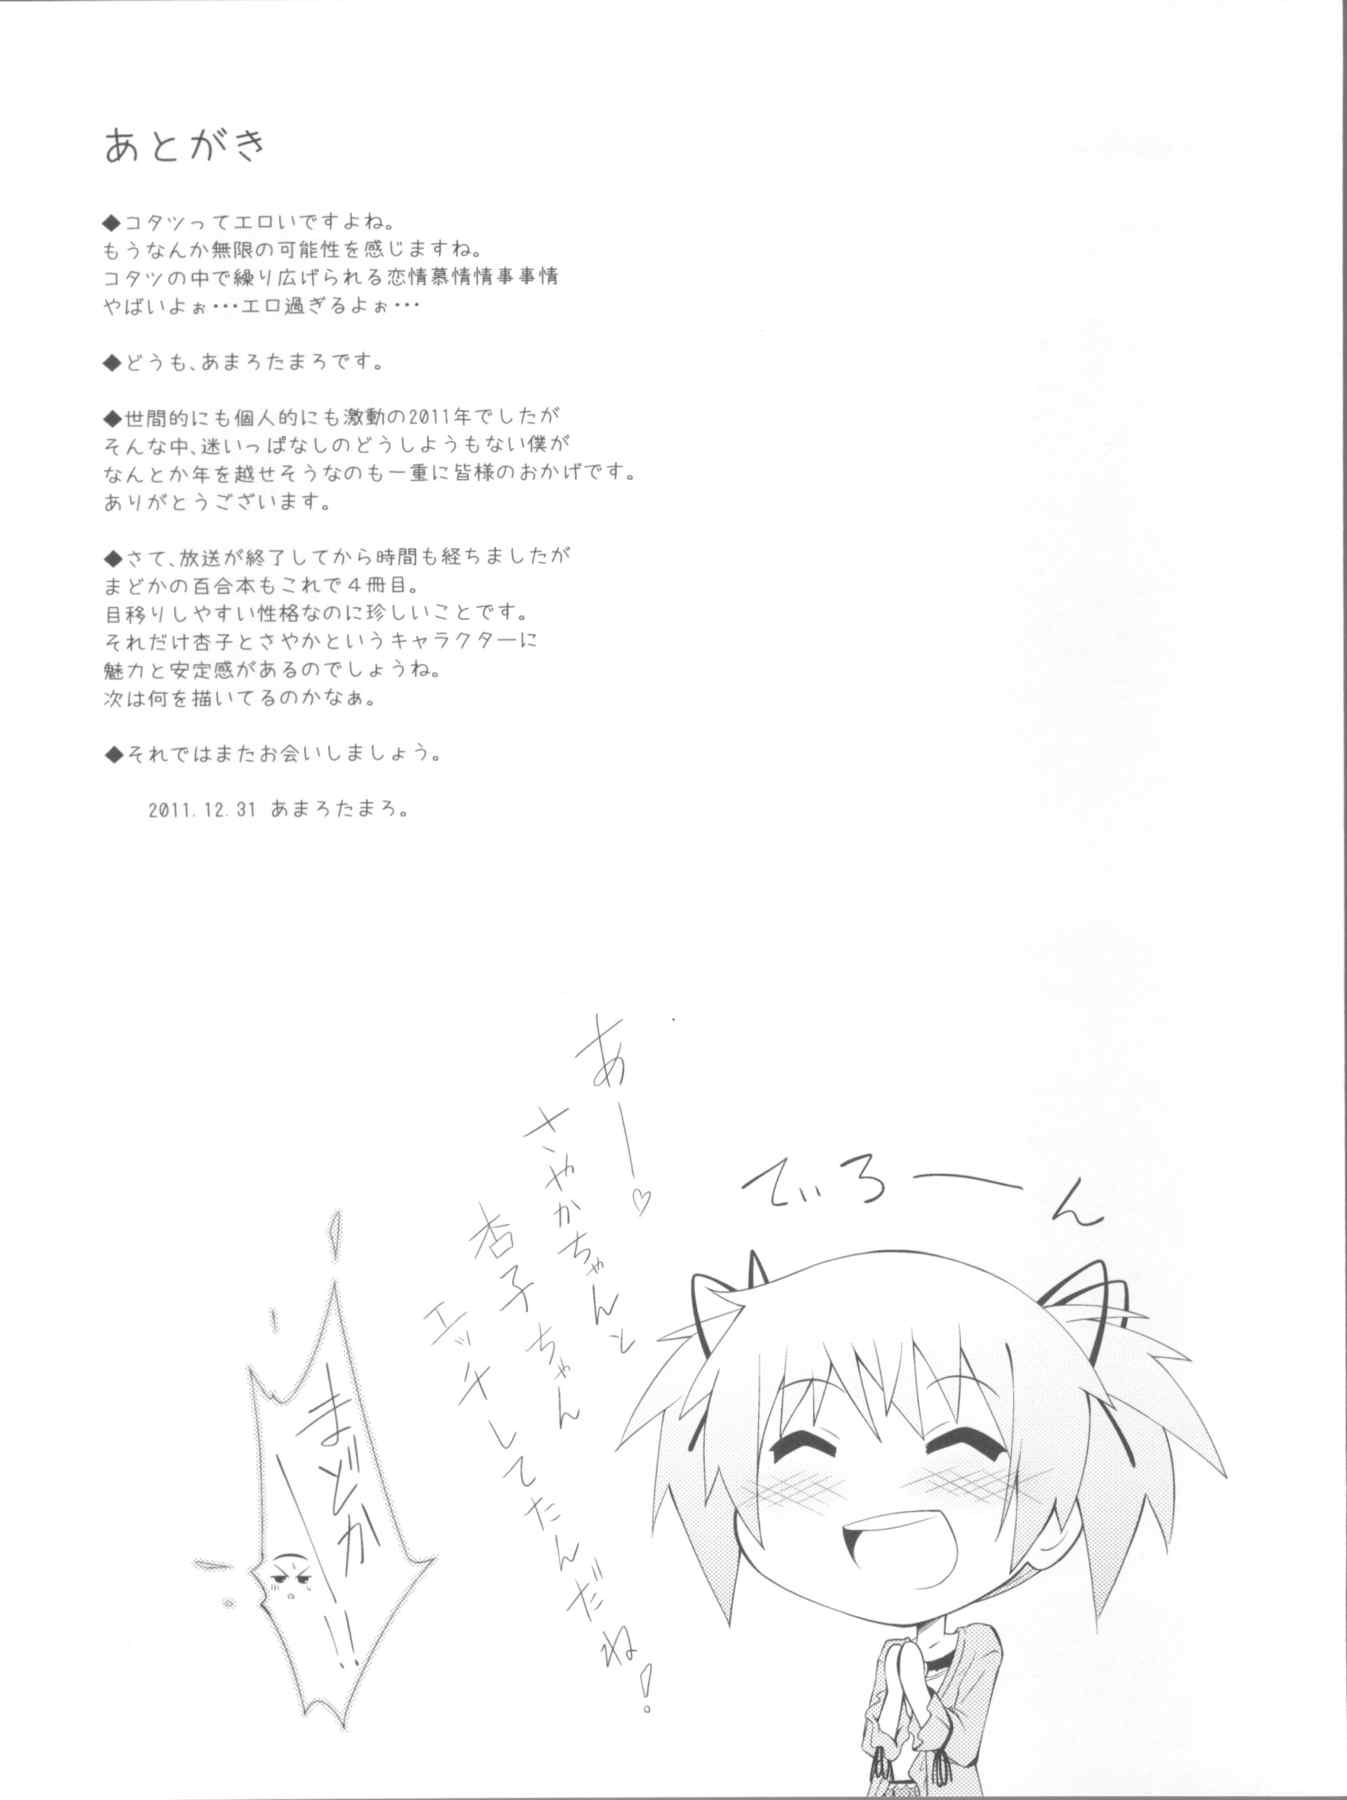 あとがき
◆コタツってエロいですよね。
もうなんか無限の可能性を感じますね。
コタツの中で繰り広げられる恋情慕情情事事情
やばいよぉ・・・エロ過ぎるよぉ・・・
◆どうも、あまろたまろです。
◆世間的にも個人的にも激動の2011年でしたが
そんな中、迷いっぱなしのどうしようもない僕が
なんとか年を越せそうなのも一重に皆様のおかげです。
ありがとうございます。
◆さて、放送が終了してから時間も経ちましたが
まどかの百合本もこれで４冊目。
目移りしやすい性格なのに珍しいことです。
それだけ杏子とさやかというキャラクターに
魅力と安定感があるのでしょうね。
次は何を描いてるのかなぁ。
◆それではまたお会いしましょう。
2011.12.31 あまろたまろ。
てぃろーーん
あー♡
さやかちゃんと
杏子ちゃん
エッチしてたんだね！
まどか
！！